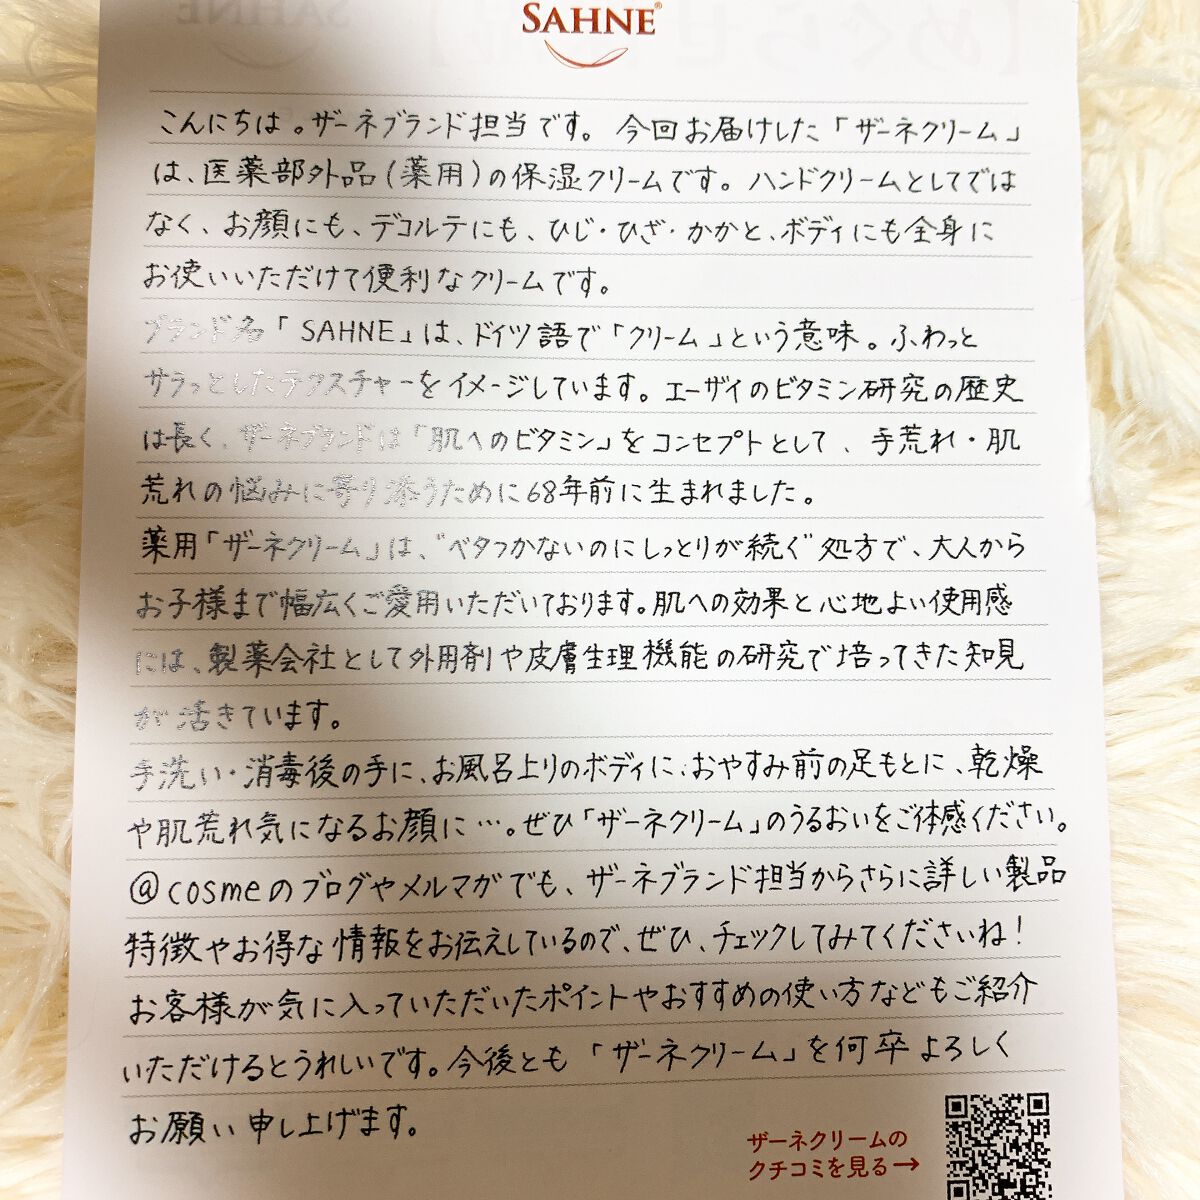 SAHNE®
こんにちは。ザーネブランド担当です。今回お届けした「ザーネクリーム」
は、医薬部外品(薬用)の保湿クリームです。ハンドクリームとしてでは
なく、お顔にも、デコルテにも、ひじ・ひざ・かかと、ボディにも全身に
お使いいただけて便利なクリームです。
ブランド名「SAHNE」は、ドイツ語で「クリーム」という意味。ふわっと
サラっとしたテクスチャーをイメージしています。エーザイのビタミン研究の歴史
は長く、ザーネブランドは「肌へのビタミン」をコンセプトとして、手荒れ・肌
荒れの悩みに寄り添うために68年前に生まれました。
薬用「ザーネクリーム」は、“ベタつかないのにしっとりが続く”処方で、大人から
お子様まで幅広くご愛用いただいております。肌への効果と心地よい使用感
には、製薬会社として外用剤や皮膚生理機能の研究で培ってきた知見
が活きています。
手洗い・消毒後の手に、お風呂上りのボディに、おやすみ前の足もとに、乾燥
や肌荒れ気になるお顔に…。ぜひ「ザーネクリーム」のうるおいをご体感ください。
@cosmeのブログやメルマガでも、ザーネブランド担当からさらに詳しい製品
特徴やお得な情報をお伝えしているので、ぜひ、チェックしてみてくださいね!
お客様が気に入っていただいたポイントやおすすめの使い方などもご紹介
いただけるとうれしいです。今後とも「ザーネクリーム」を何卒よろしく
お願い申し上げます。
ザーネクリームの
クチコミを見る→